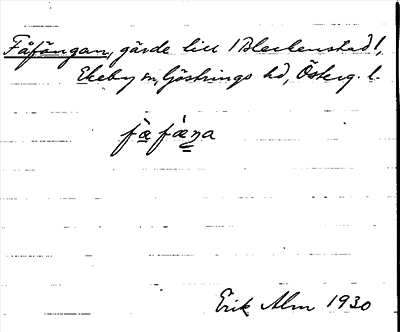 Fåfängan, gärde till 1 Bleckenstad 1,
Ekeby sn, Göstrings hd, Österg. l.
få̀fáŋa
Erik Alm 1930